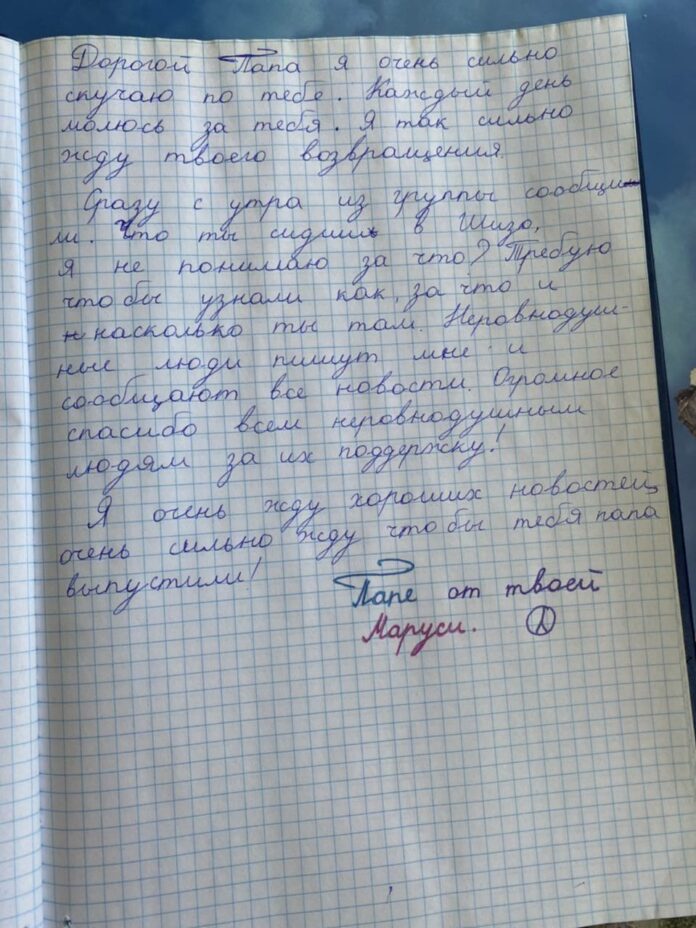 Дорогой Папа я очень сильно
скучаю по тебе. Каждый день
молюсь за тебя. Я так сильно
жду твоего возвращения
Сразу с утра из группы сообщи
ли. Что ты сидишь в Шизо,
Я не понимаю за что? Требую
что бы узнали как, за что и
насколько ты там. Неравнодуш-
ные люди пишут мне и
сообщают все новости. Огромное
спасибо всем неровнодушным
людям за их поддержку!
Я очень жду хороших новостей,
очень сильно жду что бы тебя папа
выпустили!
Папе от твоей
Маруси.